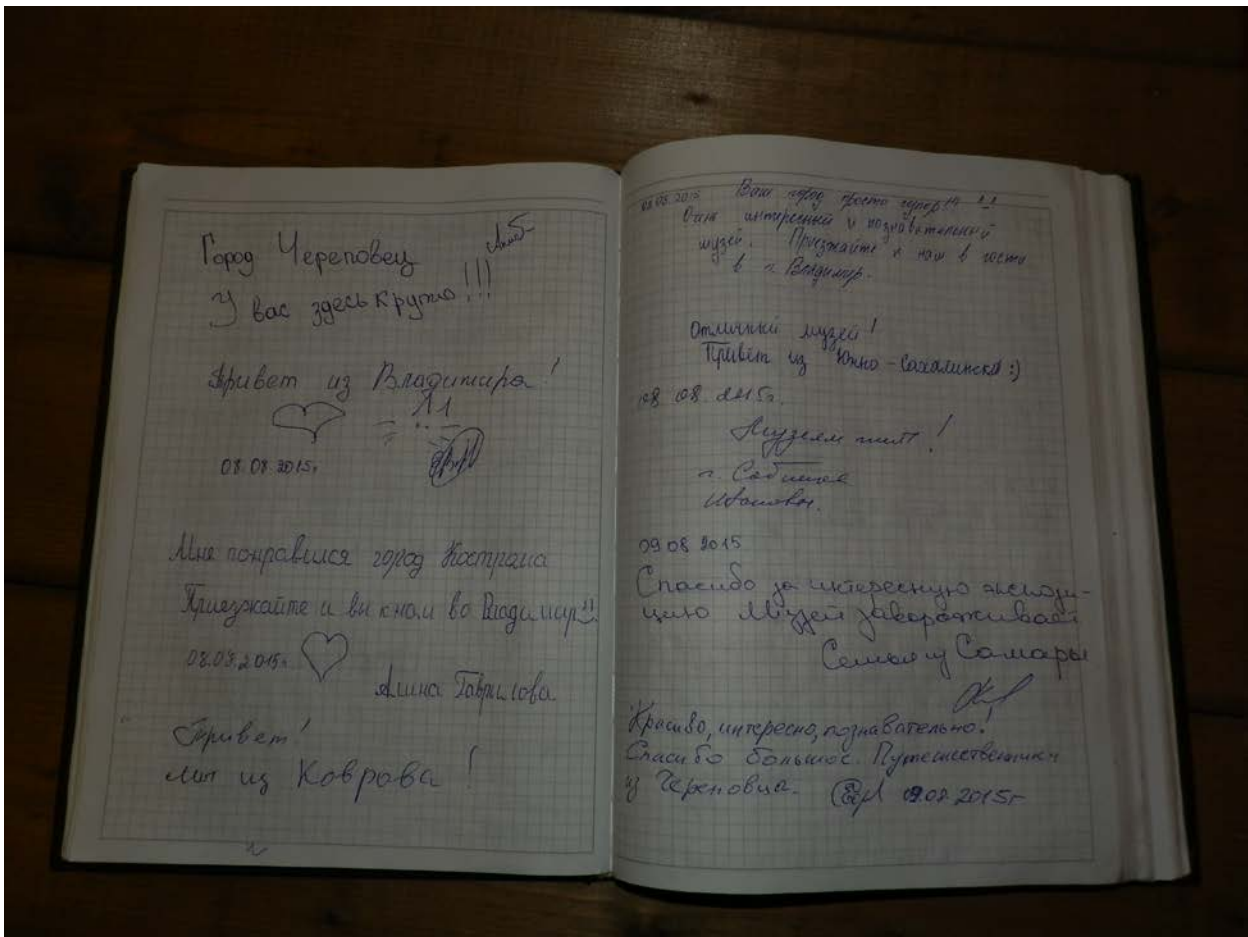 Город Череповец
У вас здесь круто!!!
Привет из Владимира!
08.08.2015г.
Мне понравился город Кострама
Приезжайте и вы к нам во Владимир!!
08.08.2015г.
Алина Гаврилова
Привет!
из Коврова!
08.08.2015 Ваш город просто супер!!!
Очень интересный и познавательный
музей. Приезжайте к нам в гости
в г. Владимир.
Отличный музей!
Привет из Южно-Сахалинска :)
08.08.2015г.
Музеям
г.
Ивановы.
09.08.2015
Спасибо за интересную экспози-
цию Музей завораживает
Семья из Самары
Красиво, интересно, познавательно!
Спасибо большое. Путешественники
из Череповца. 09.08.2015г